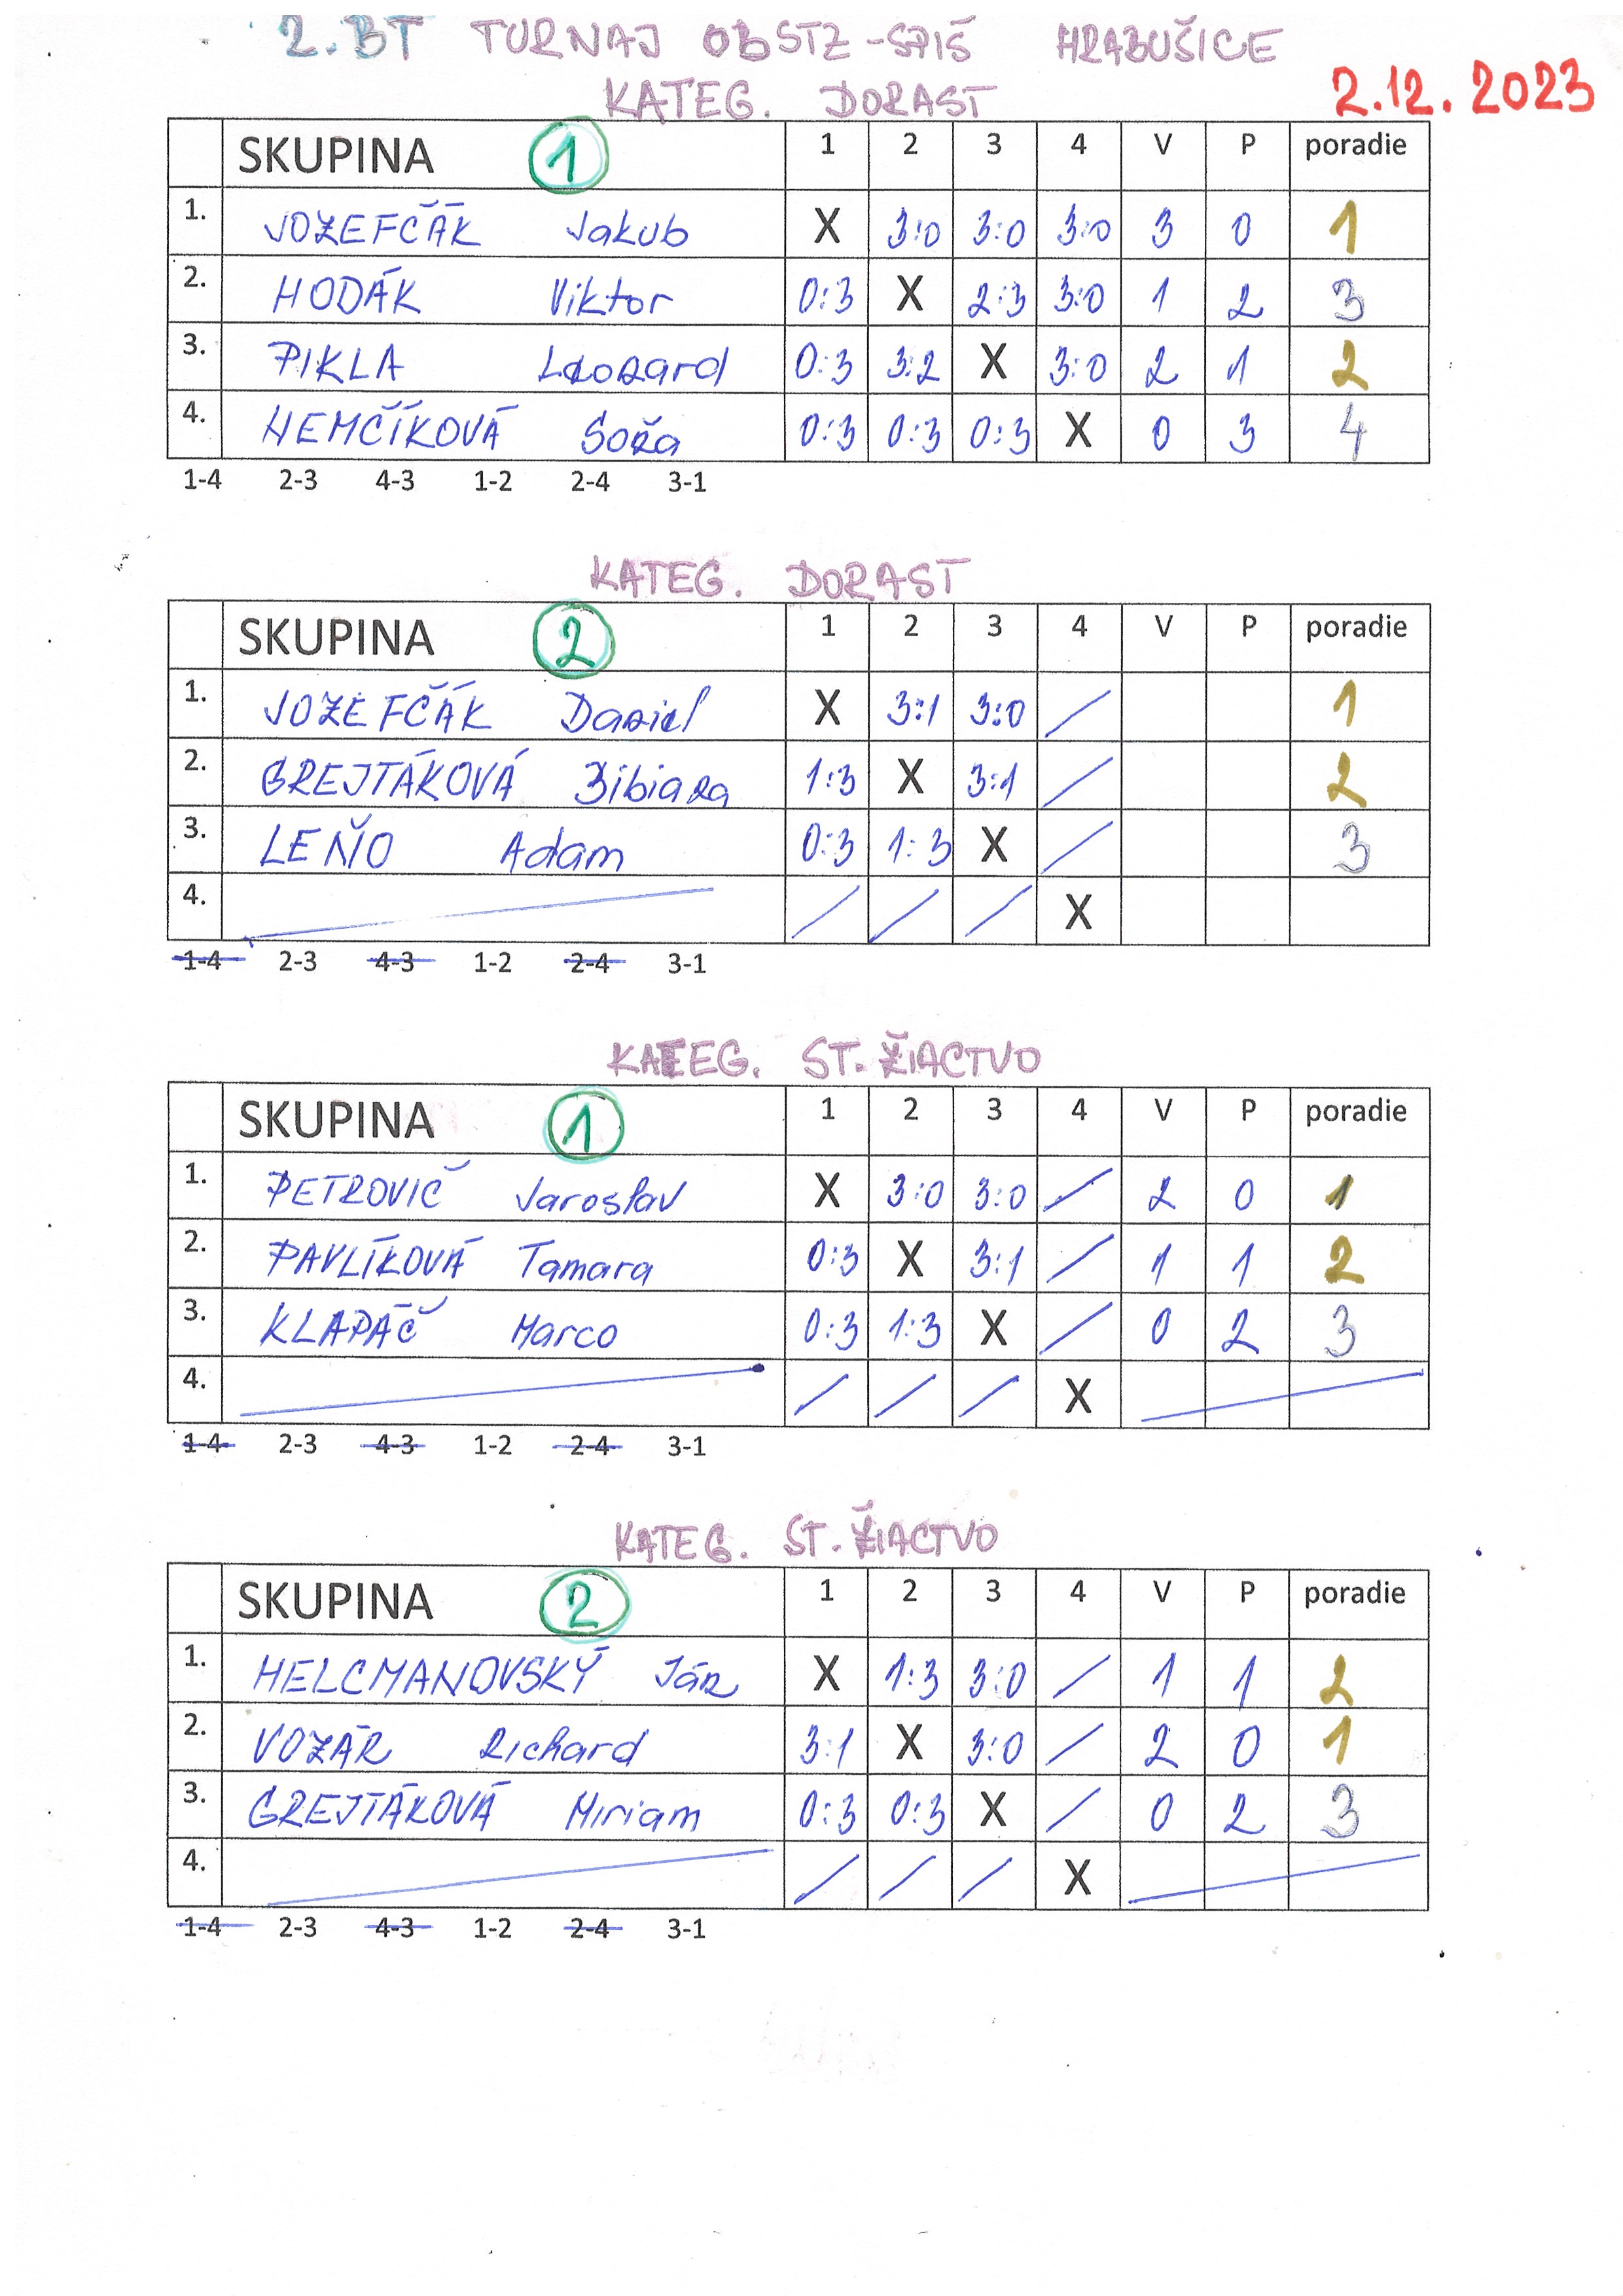 2.BT TURNAJ OBSTZ-SPIŠ HRABUŠICE
KATEG. DORAST 2.12.2023
SKUPINA 1 1 2 3 4 V P poradie
1. JOZEFČÁK Jakub X 3:0 3:0 3:0 3 0 1
2. HODÁK Viktor 0:3 X 2:3 3:0 1 2 3
3. PIKLA 0:3 3:2 X 3:0 2 1 2
4. HEMČÍKOVÁ Soňa 0:3 0:3 0:3 X 0 3 4
1-4 2-3 4-3 1-2 2-4 3-1
KATEG. DORAST
SKUPINA 2 1 2 3 4 V P poradie
1. JOZEFČÁK Daniel X 3:1 3:0 / 1
2. GREJTÁKOVÁ Bibiana 1:3 X 3:1 / 2
3. LEŇO Adam 0:3 1:3 X / 3
4. / / / X
1-4 2-3 4-3 1-2 2-4 3-1
KATEG. ST. ŽIACTVO
SKUPINA 1 1 2 3 4 V P poradie
1. PETROVIČ Jaroslav X 3:0 3:0 / 2 0 1
2. PAVLÍKOVÁ Tamara 0:3 X 3:1 / 1 1 2
3. KLAPÁČ Marco 0:3 1:3 X / 0 2 3
4. / / / X
1-4 2-3 4-3 1-2 2-4 3-1
KATEG. ST. ŽIACTVO
SKUPINA 2 1 2 3 4 V P poradie
1. HELCMANOVSKÝ Ján X 1:3 3:0 / 1 1 2
2. VOZÁR Richard 3:1 X 3:0 / 2 0 1
3. GREJTÁKOVÁ Miriam 0:3 0:3 X / 0 2 3
4. / / / X
1-4 2-3 4-3 1-2 2-4 3-1